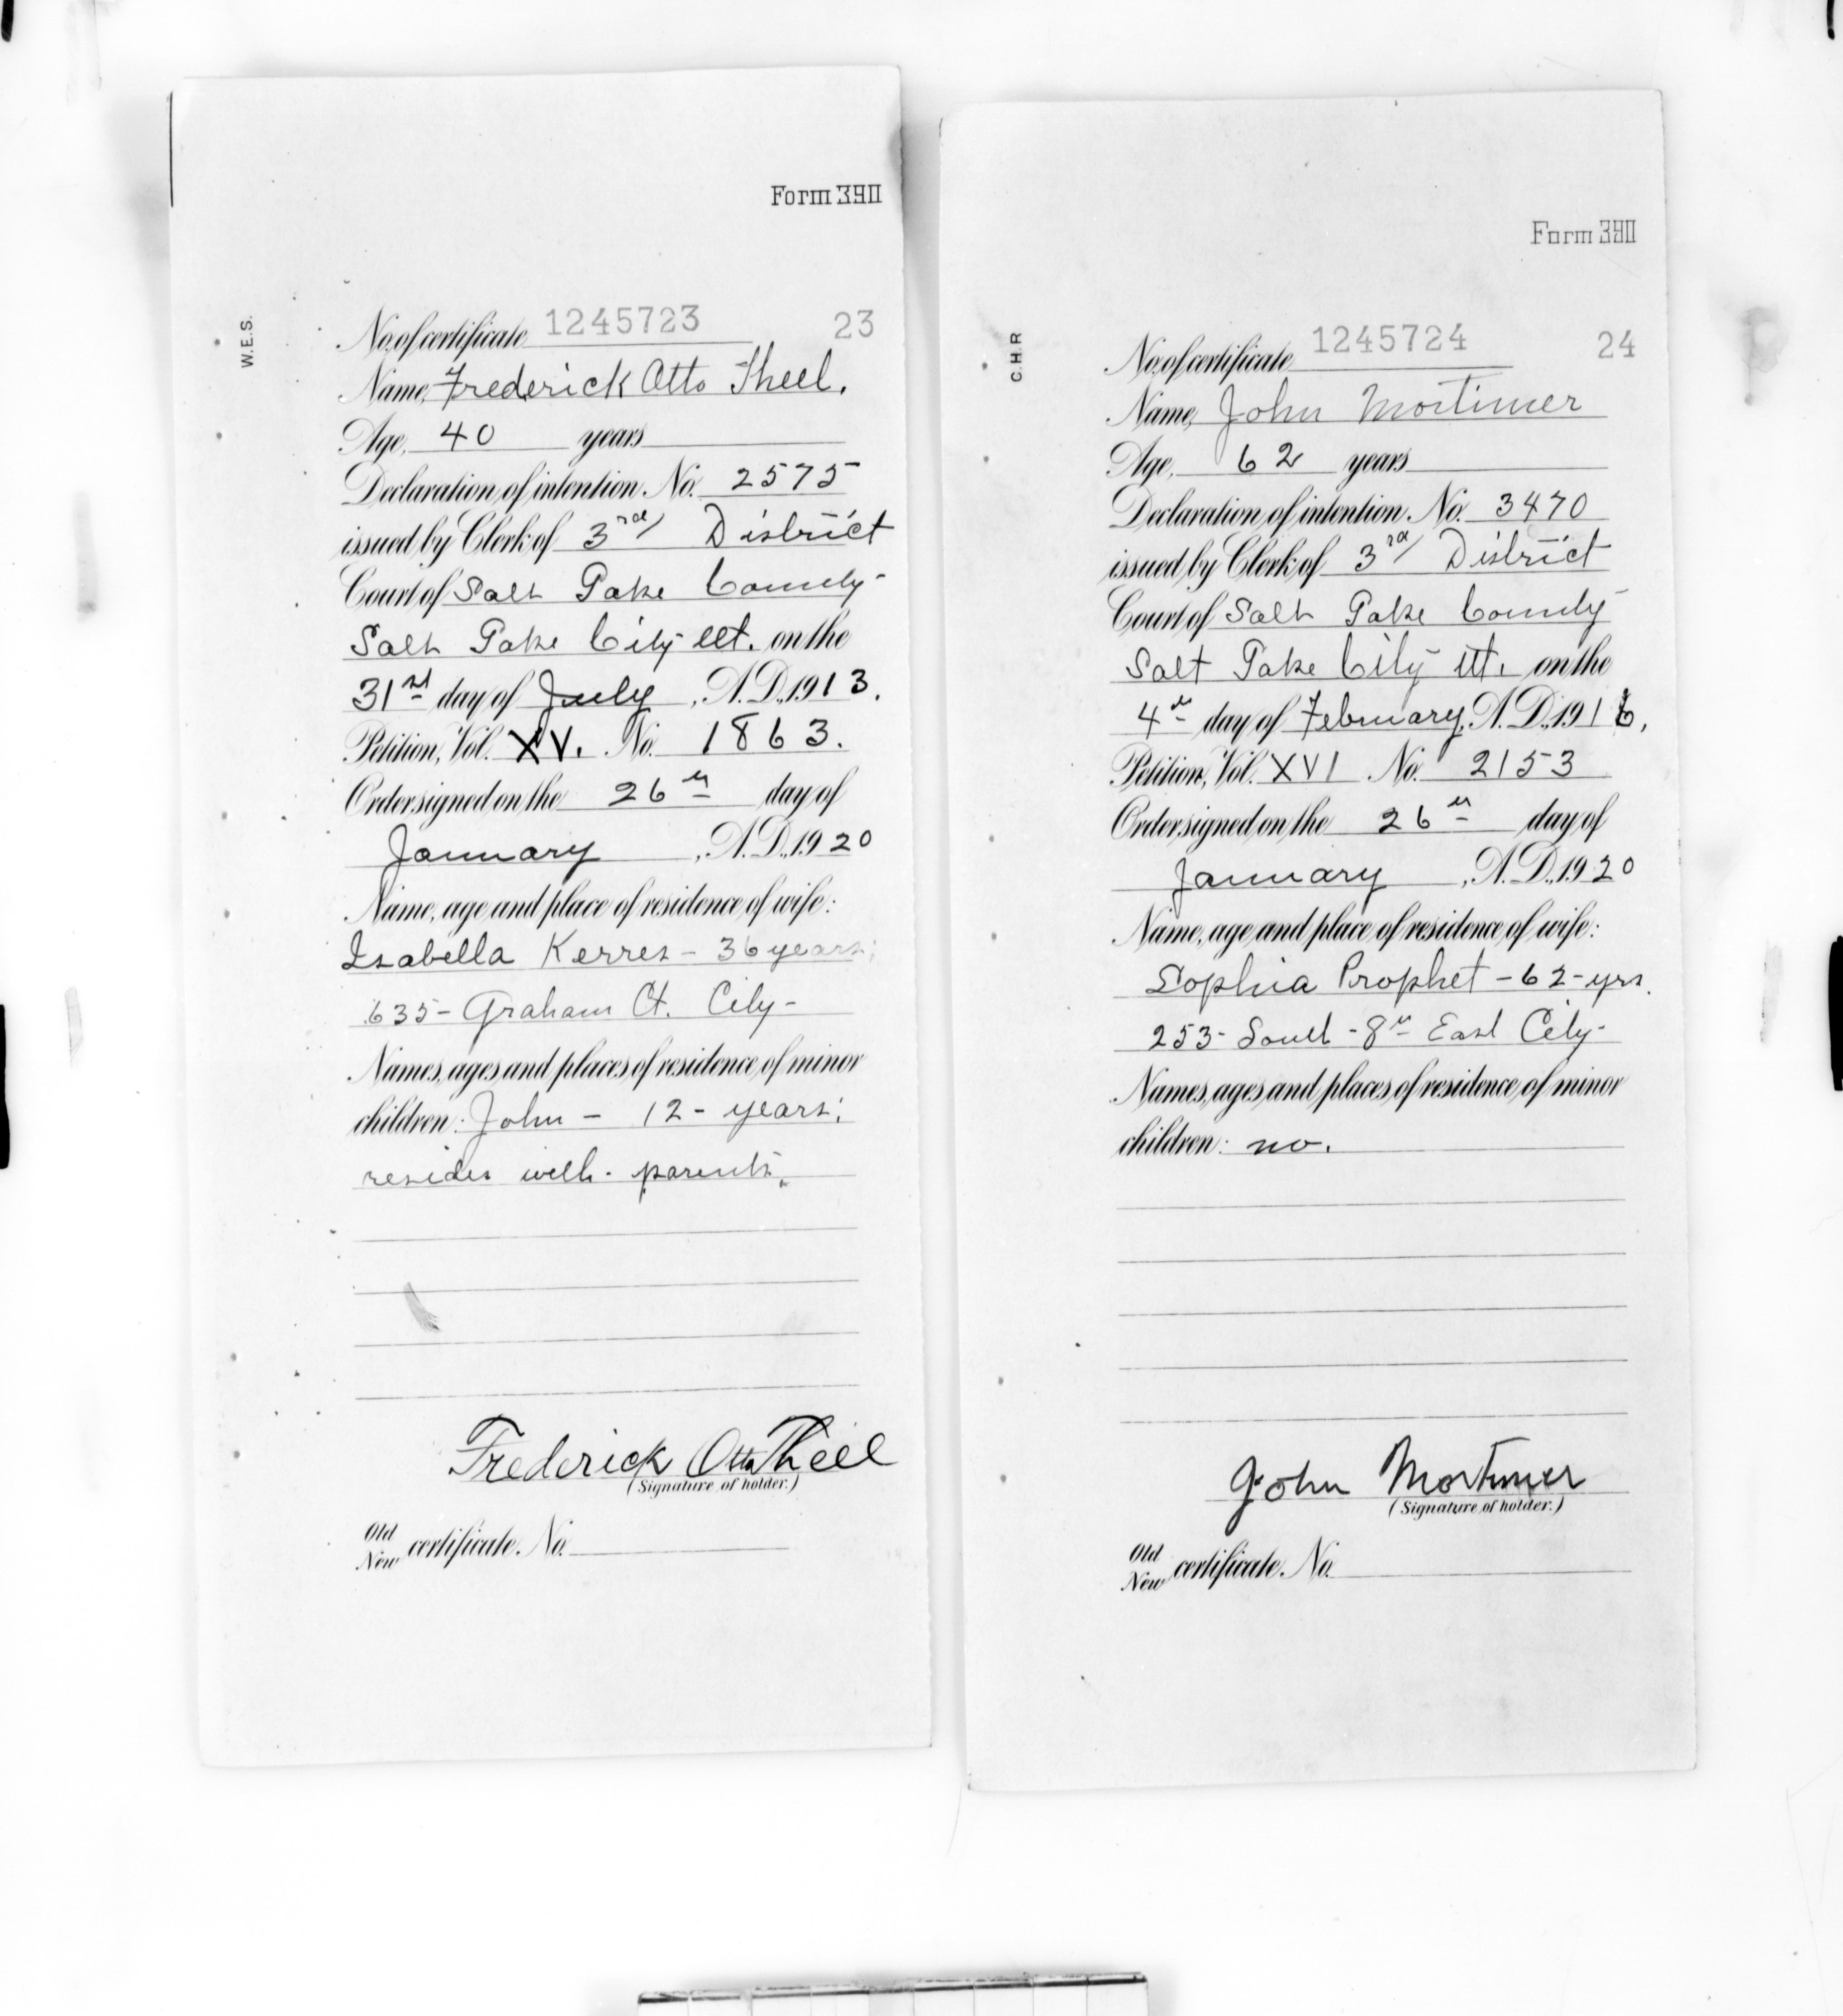 Form 390
W.E.S.
No. of certificate 1245723 23
Name, Frederick Otto Theel.
Age, 40 years
Declaration of intention No. 2575
issued by Clerk of 3rd District
Court of Salt Lake County
Salt Lake City Ut. on the
31st day of July, A.D., 1913.
Petition, Vol. XV. No. 1863.
Order signed on the 26th day of
January, A.D., 1920
Name, age and place of residence of wife:
Isabella Kerres - 36 years;
635 - Graham Ct. City -
Names, ages and places of residence of minor
children: John - 12 - years;
resides with parents.
Frederick Otto Theel
(Signature of holder.)
Old
New certificate. No.
Form 390
C.H.R
No. of certificate 1245724 24
Name, John Mortimer
Age, 62 years
Declaration of intention No. 3470
issued by Clerk of 3rd District
Court of Salt Lake County
Salt Lake City Ut. on the
4th day of February, A.D., 1916,
Petition, Vol. XVI No. 2153
Order signed on the 26th day of
January, A.D., 1920
Name, age and place of residence of wife:
Sophia Prophet - 62 - yrs.
253 - South - 8th East City -
Names, ages and places of residence of minor
children: no.
John Mortimer
(Signature of holder.)
Old
New certificate. No.